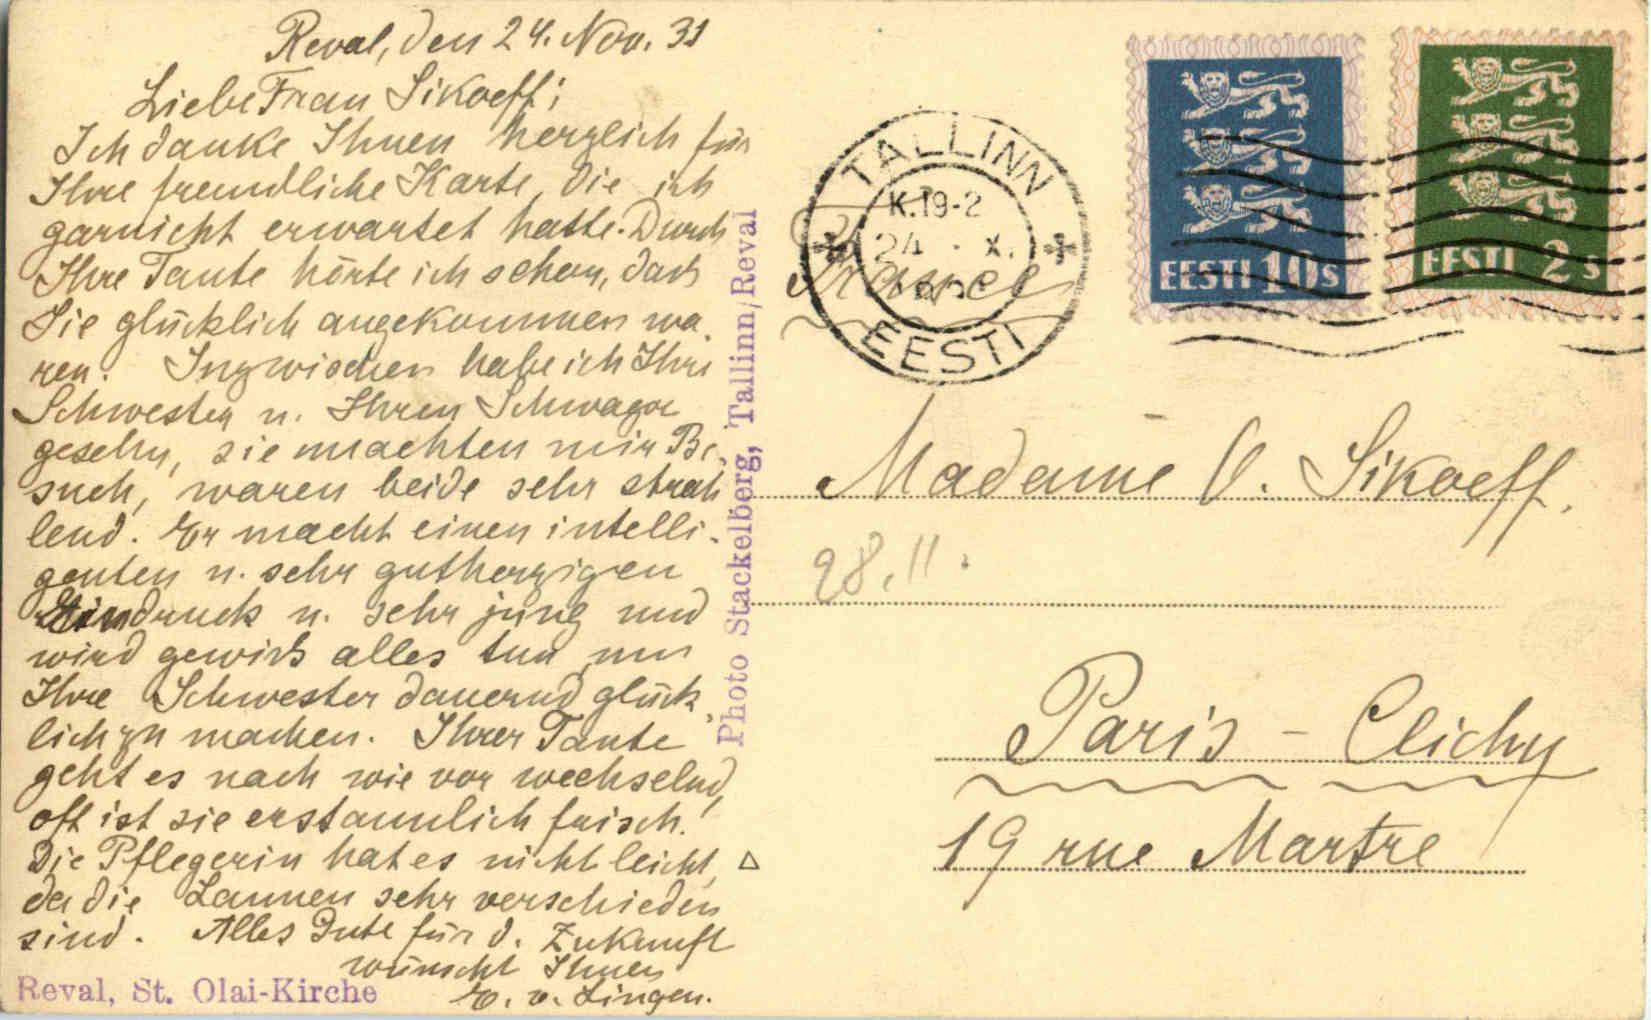 Reval, den 24. Nov. 31
Liebe Frau Sikoeff;
Ich danke Ihnen herzlich für
Ihre freundliche Karte, die ich
garnicht erwartet hatte. Durch
Ihre Tante hörte ich schon, dass
Sie glücklich angekommen wa-
ren. Inzwischen habe ich Ihre
Schwester u. Ihren Schwager
gesehn, sie machten mir Be-
such, waren beide sehr strah
lend. Er macht einen intelli-
genten u. sehr gutherzigen
Eindruck u. sehr jung und
wird gewiss alles tun um
Ihre Schwester dauernd glück-
lich zu machen. Ihrer Tante
geht es nach wie vor wechselnd,
oft ist sie erstaunlich frisch.
Die Pflegerin hat es nicht leicht,
da die Launen sehr verschieden
sind. Alles Gute für d. Zukunft
wünscht Ihnen
E. v. Lingen.
Reval, St. Olai-Kirche
Photo Stackelberg, Tallinn/Reval
TALLINN
K.19-2
24 · X.
EESTI
EESTI 10 s
EESTI 2 s
France
Madame V. Sikoeff.
28.11.
Paris - Clichy
19 rue Martre